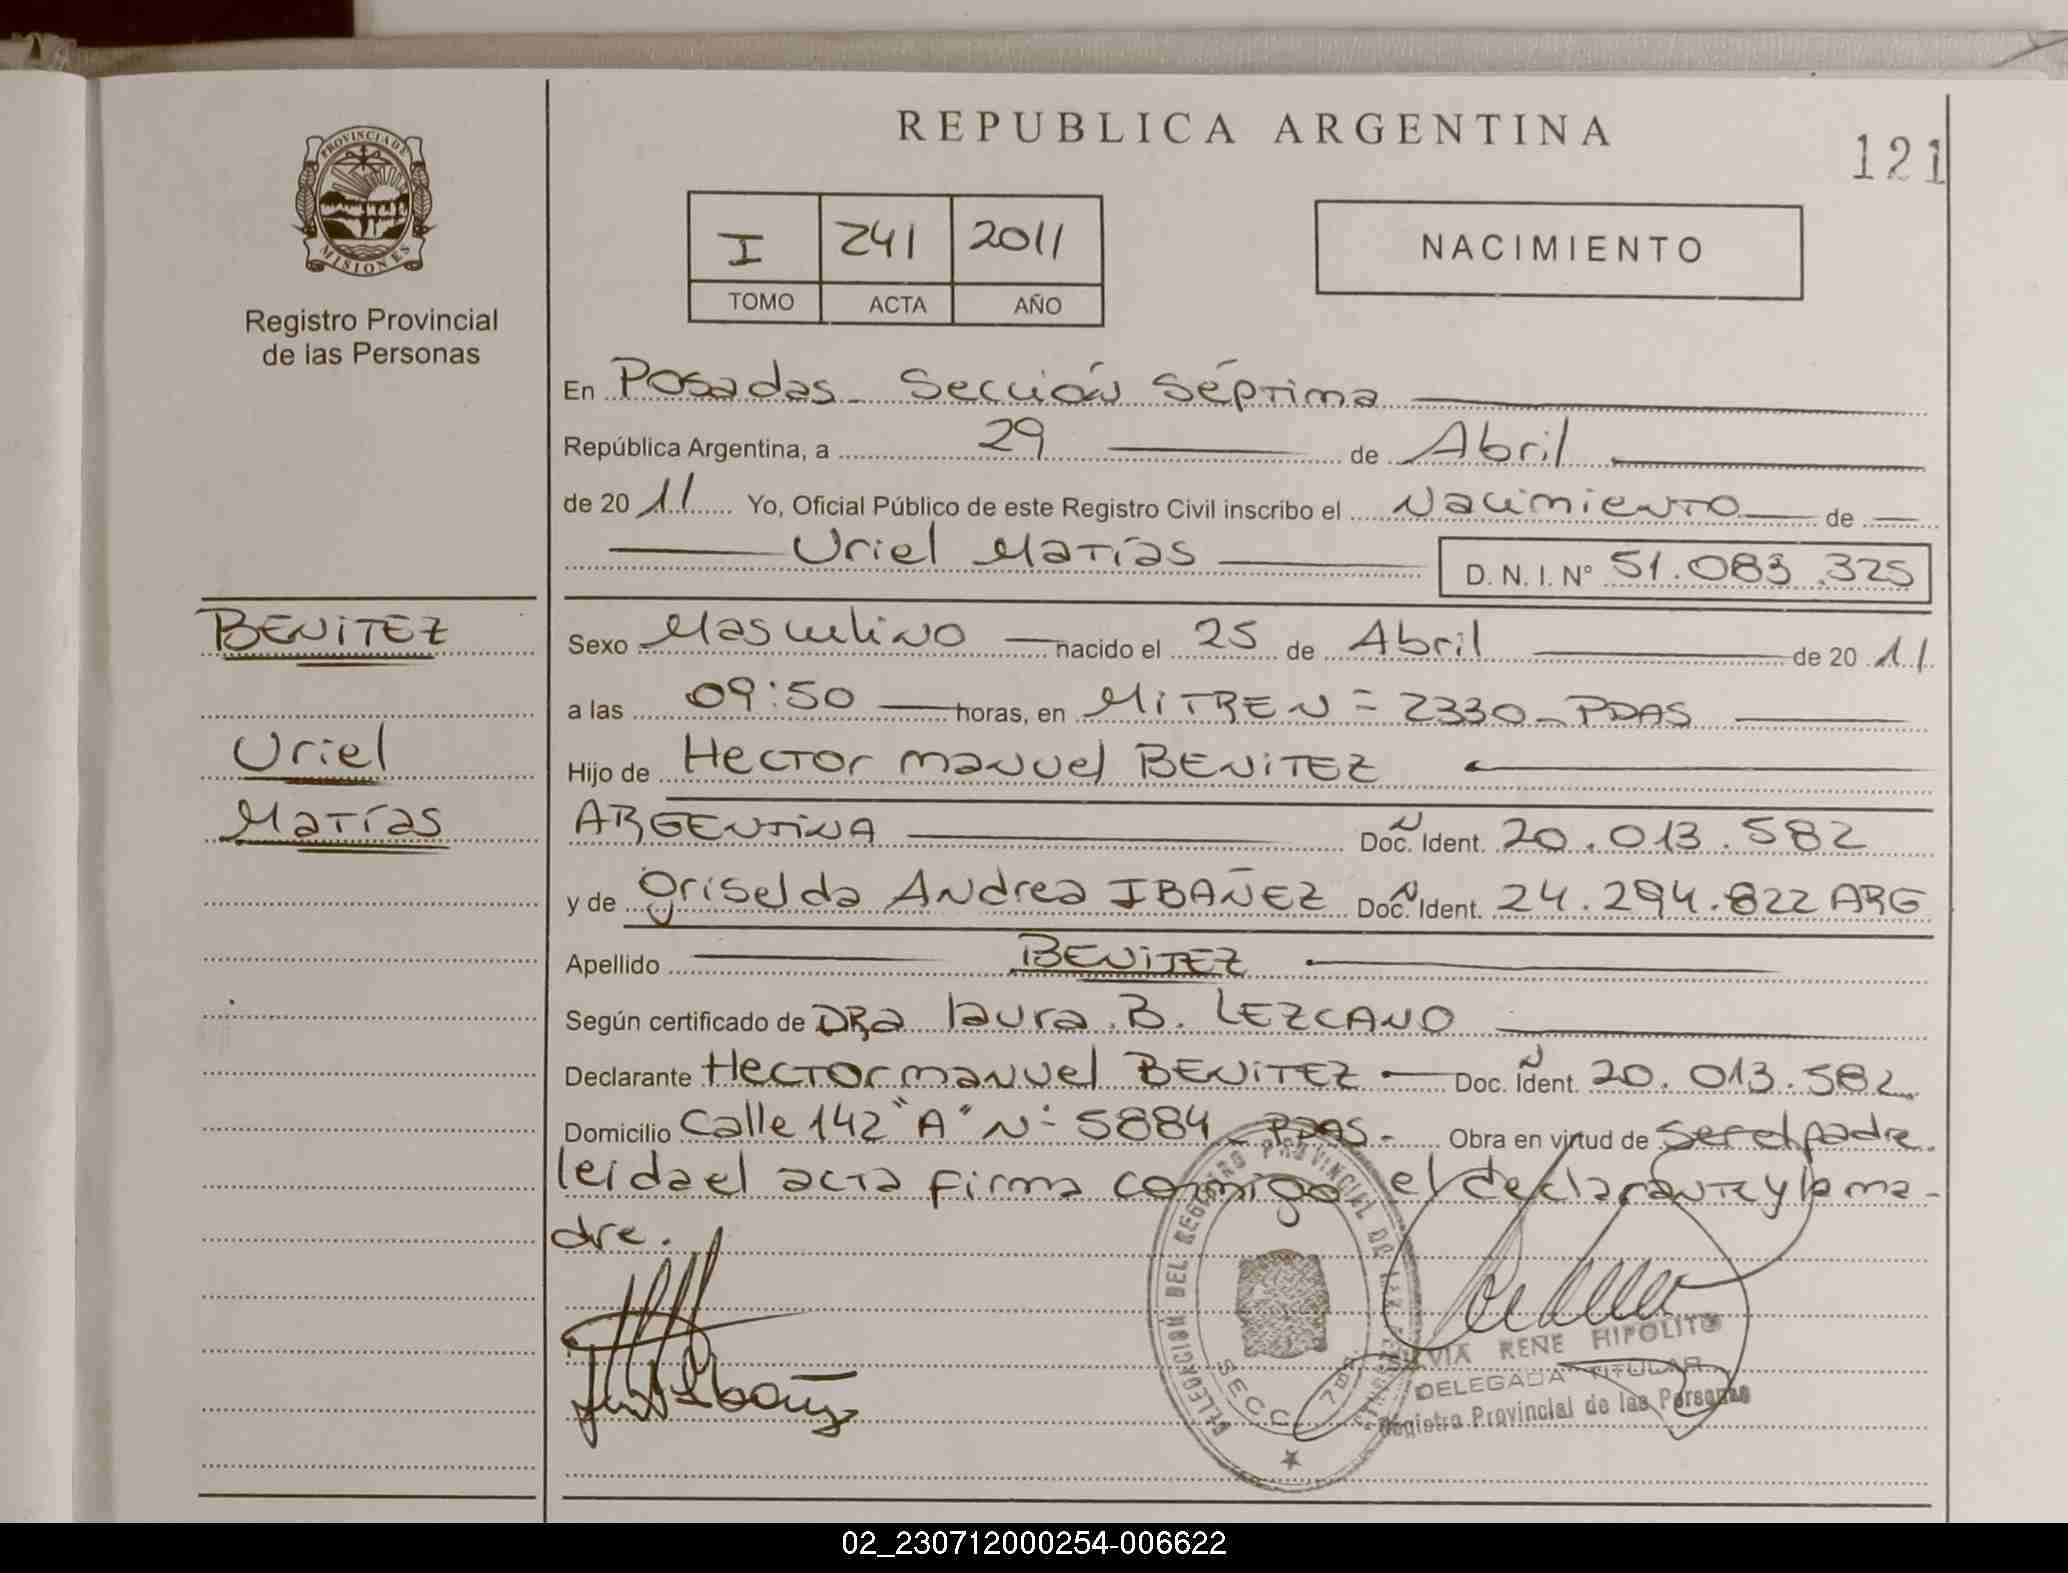 REPUBLICA ARGENTINA
121
PROVINCIA DE MISIONES
Registro Provincial
de las Personas
I 241 2011
TOMO ACTA AÑO
NACIMIENTO
En Posadas - Sección Séptima
República Argentina, a 29 de Abril
de 20 11 Yo, Oficial Público de este Registro Civil inscribo el Nacimiento de
Uriel Matías D. N. I. Nº 51.083.325
BENITEZ
Uriel
Matías
Sexo Masculino nacido el 25 de Abril de 20 11
a las 09:50 horas, en MITRE N= 2330 - PDAS
Hijo de Hector Manuel BENITEZ
ARGENTINA Doc. Ident. 20.013.582
y de Griselda Andrea IBAÑEZ Doc. Ident. 24.294.822 ARG
Apellido BENITEZ
Según certificado de DRA Laura. B. LEZCANO
Declarante Hector Manuel BENITEZ Doc. Ident. 20.013.582
Domicilio Calle 142 "A" N- 5884 - PDAS - Obra en virtud de ser el padre.
leida el acta firma conmigo el declarante y la ma-
dre.
DELEGACIÓN DEL REGISTRO PROVINCIAL DE LAS
SECC. 7ma.
SILVIA RENE HIPOLITO
DELEGADA TITULAR
Registro Provincial de las Personas
02_230712000254-006622